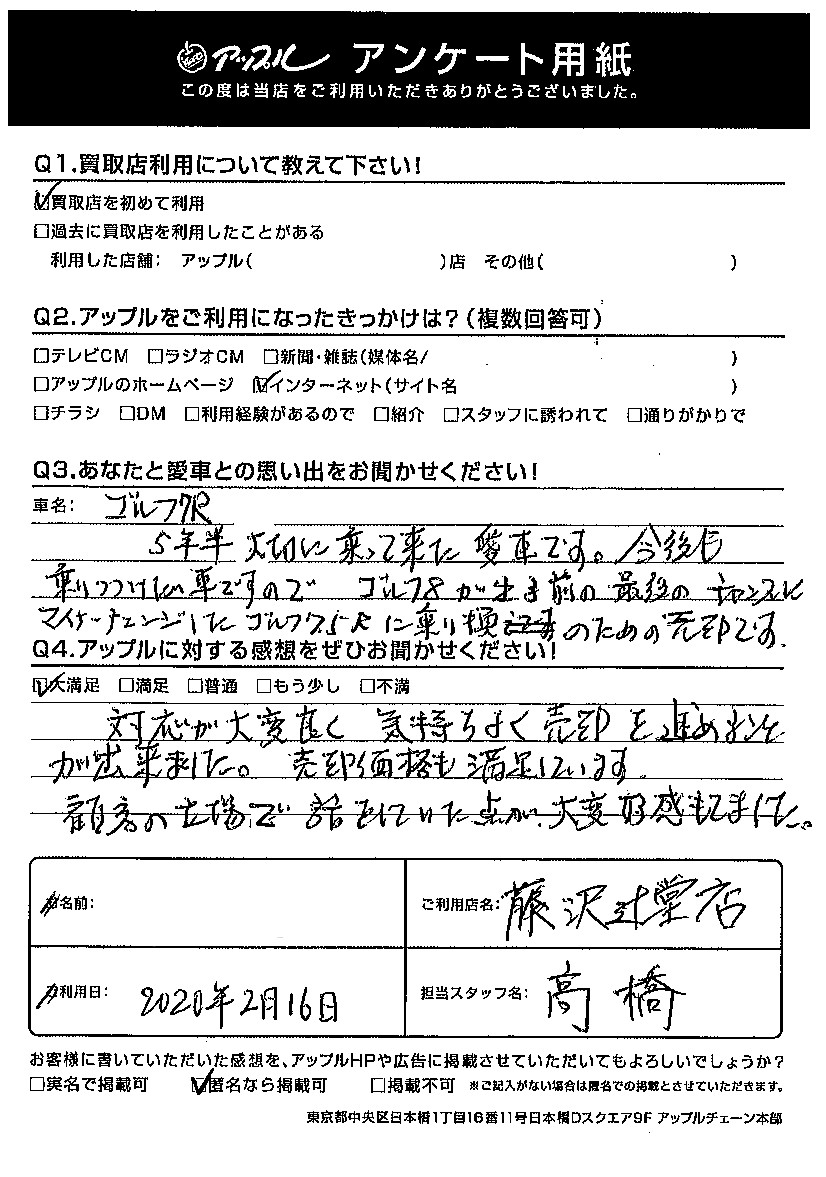 アップル アンケート用紙
この度は当店をご利用いただきありがとうございました。
Q1.買取店利用について教えて下さい!
☑買取店を初めて利用
□過去に買取店を利用したことがある
利用した店舗: アップル( )店 その他( )
Q2.アップルをご利用になったきっかけは?(複数回答可)
□テレビCM □ラジオCM □新聞・雑誌(媒体名/ )
□アップルのホームページ ☑インターネット(サイト名 )
□チラシ □DM □利用経験があるので □紹介 □スタッフに誘われて □通りがかりで
Q3.あなたと愛車との思い出をお聞かせください!
車名: ゴルフ7R
5年半 大切に乗って来た愛車です。今後も
乗りつづけたい車ですので ゴルフ8が出る前の最後のチャンスに
マイナーチェンジしたゴルフ7.5Rに乗り換 のための売却です。
Q4.アップルに対する感想をぜひお聞かせください!
☑大満足 □満足 □普通 □もう少し □不満
対応が大変良く 気持ちよく売却を進めること
が出来ました。売却価格も満足しています。
顧客の立場で話をしていた点が、大変好感もてました。
お名前: ご利用店名: 藤沢辻堂店
ご利用日: 2020年2月16日 担当スタッフ名: 高橋
お客様に書いていただいた感想を、アップルHPや広告に掲載させていただいてもよろしいでしょうか?
□実名で掲載可 ☑匿名なら掲載可 □掲載不可 ※ご記入がない場合は匿名での掲載とさせていただきます。
東京都中央区日本橋1丁目16番11号日本橋Dスクエア9F アップルチェーン本部